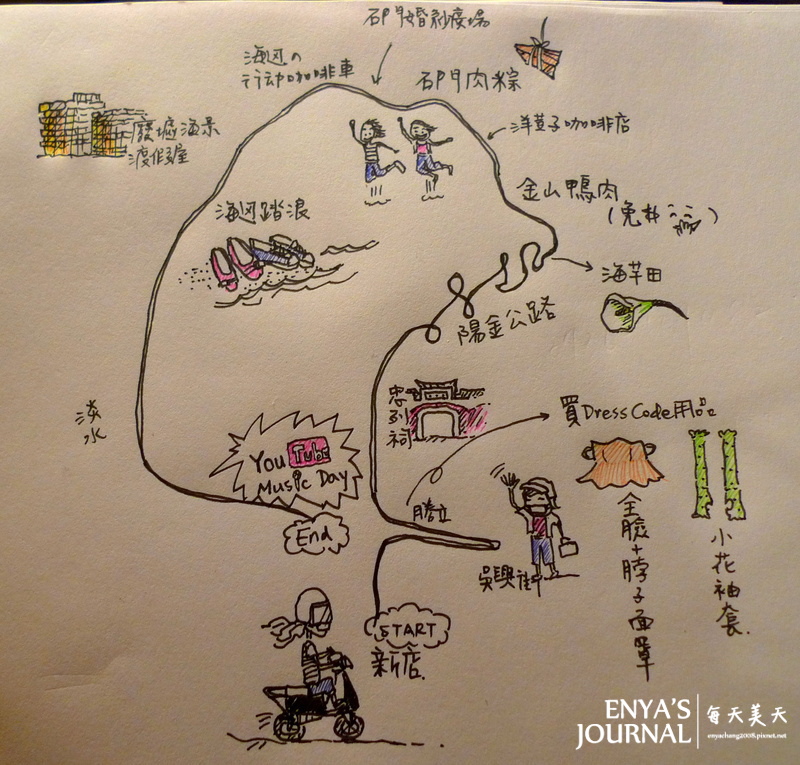 石門婚紗廣場
海边の
行动咖啡車
石門肉粽
廢墟海景
渡假屋
洋荳子咖啡店
金山鴨肉
海边踏浪
海芋田
陽金公路
忠列祠
買DressCode用品
淡水
YouTube
Music Day
End
勝立
吳興街
全臉+脖子面罩
小花袖套.
START
新店.
ENYA'S
JOURNAL
每天美天
enyachang2008.pixnet.net